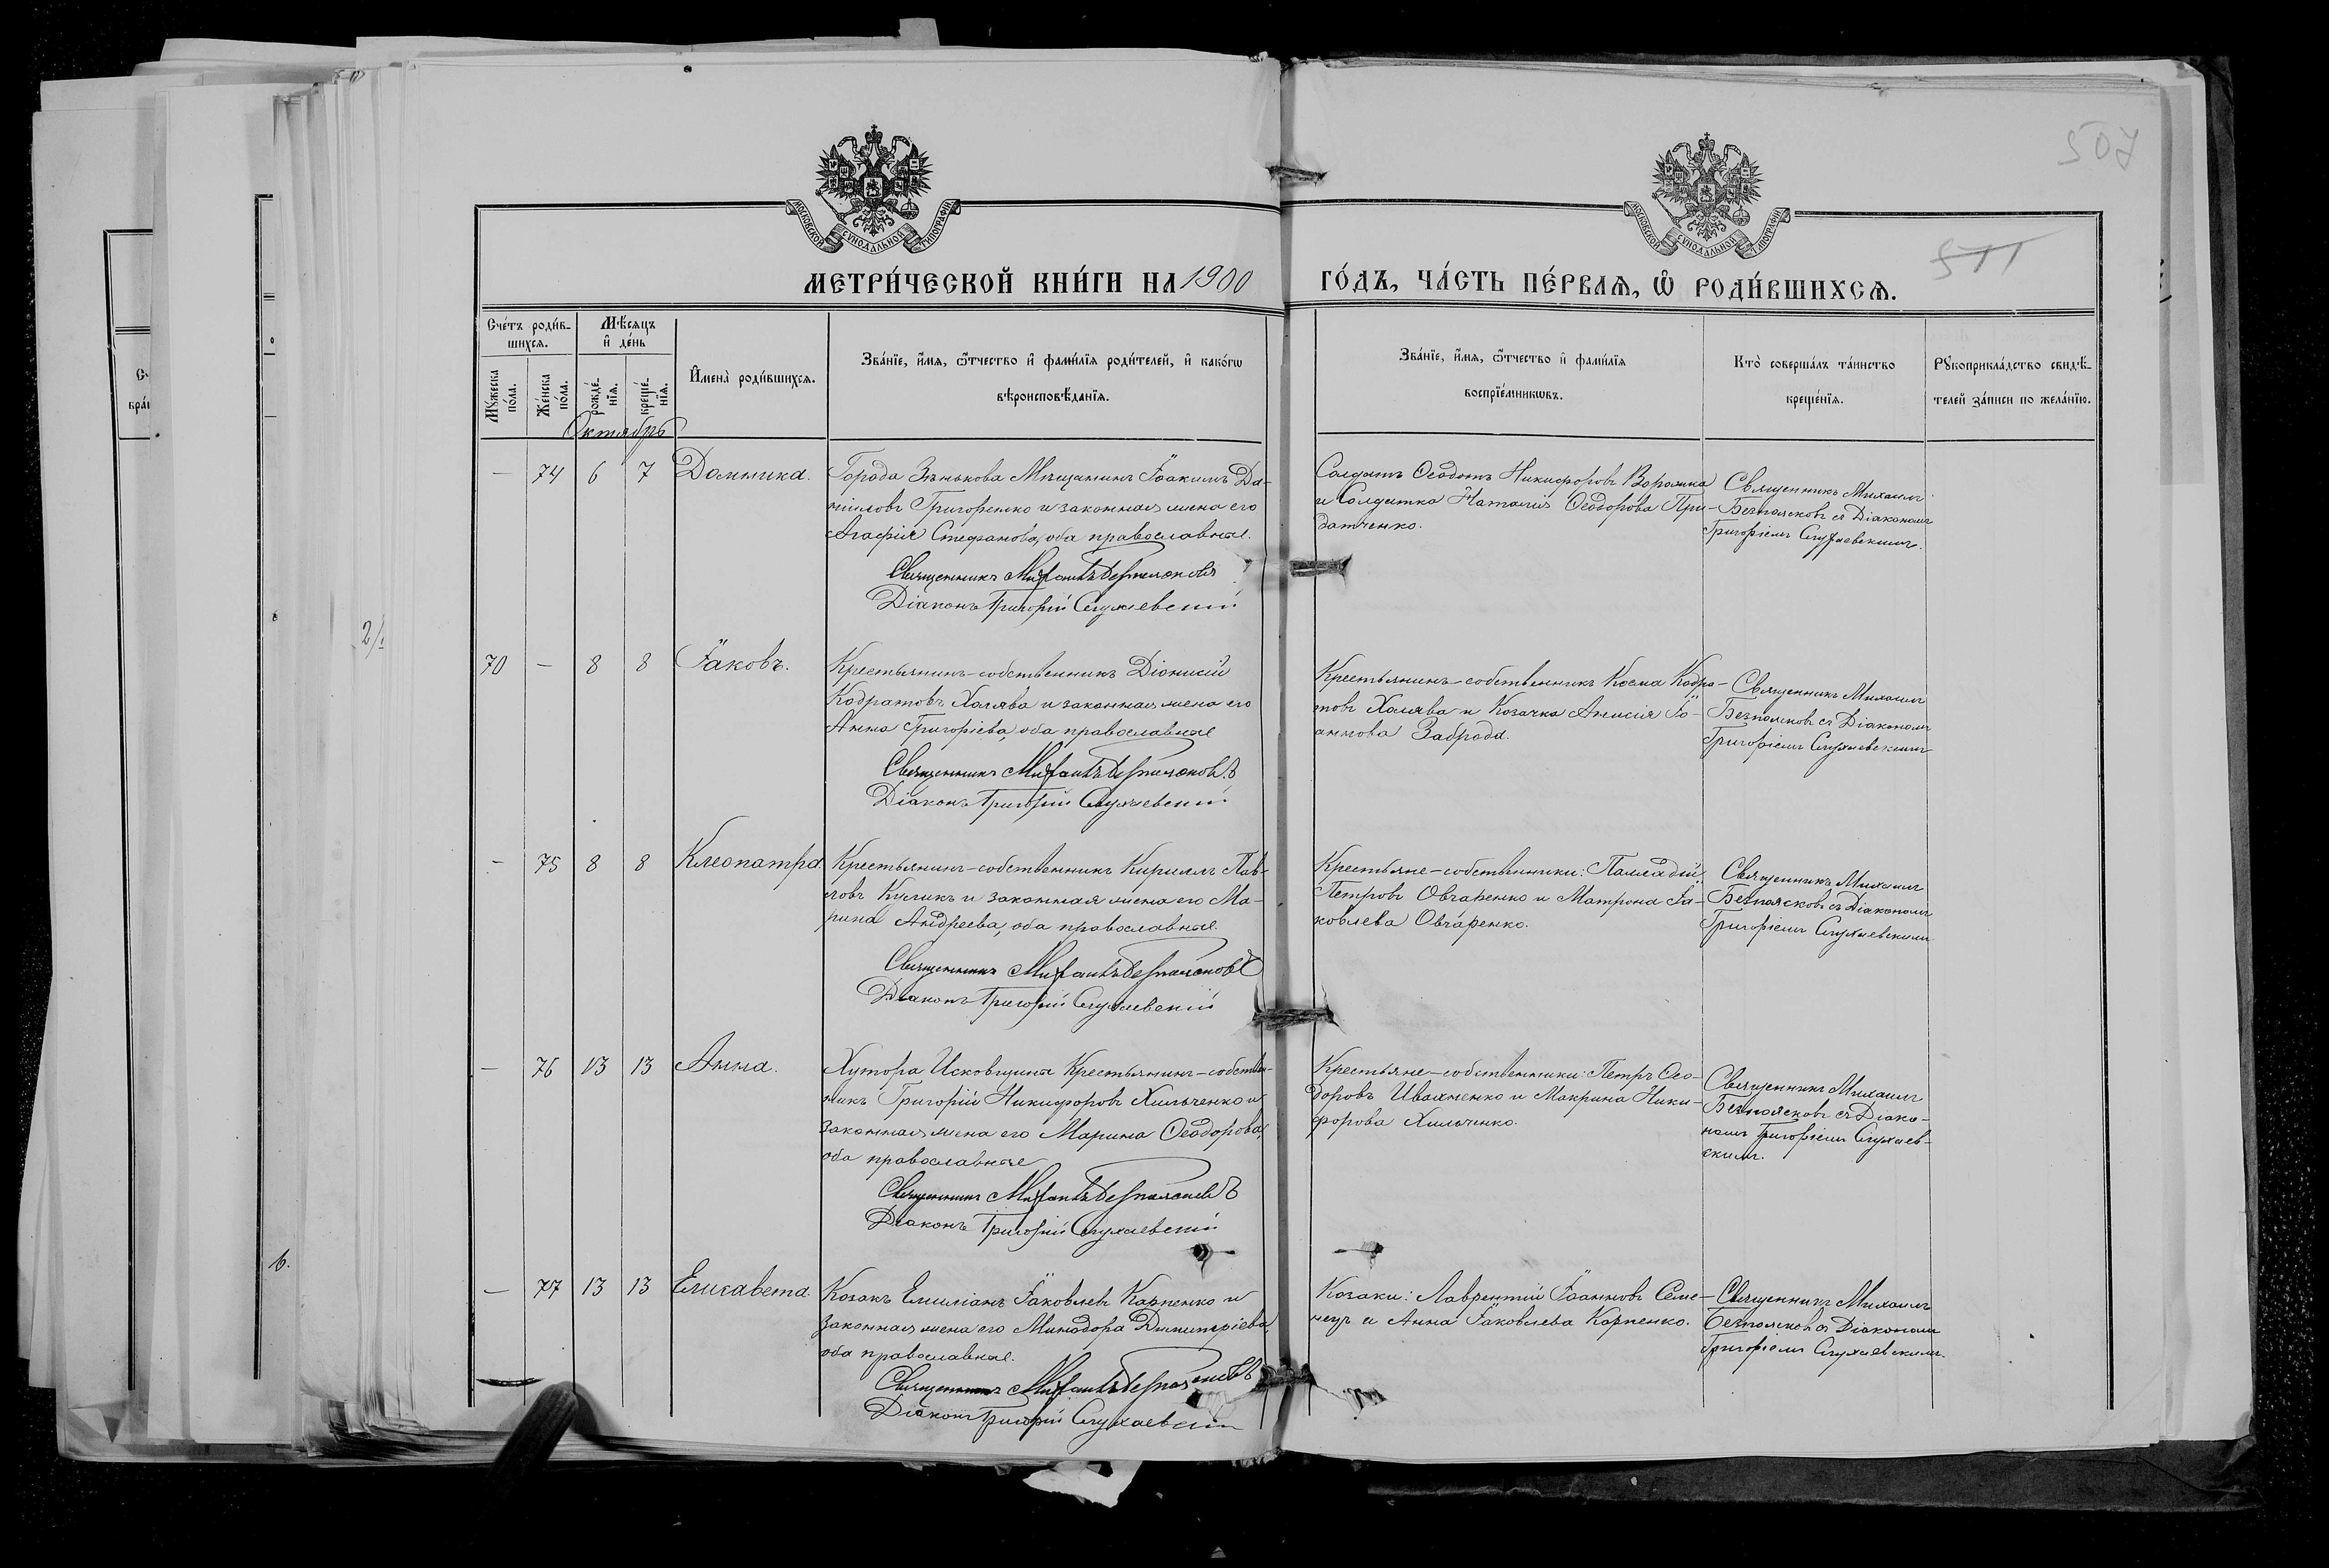 507
511
МОСКОВСКОЙ СУНОДАЛЬНОЙ ТИПОГРАФІИ
МОСКОВСКОЙ СУНОДАЛЬНОЙ ТИПОГРАФІИ
МЕТРИ́ЧЕСКОЙ КНИ́ГИ НА 1900 ГО́ДЪ, ЧА́СТЬ ПЕ́РВАѦ, Ѡ РОДИ́ВШИХСѦ.
Сче́тъ роди́в-
шихсѧ.
Мѣсѧцъ
и де́нь
Мꙋ́жеска
по́ла.
Же́нска
по́ла.
рожде́-
нїѧ.
креще́-
нїѧ.
Имена̀ роди́вшихсѧ.
Зва́нїе, и́мѧ, ѿтчество и фами́лїѧ роди́телей, и како́гѡ
вѣроисповѣ́данїѧ.
Зва́нїе, и́мѧ, ѿтчество и фами́лїѧ
воспрїе́мникѡвъ.
Кто̀ соверша́лъ та́инство
креще́нїѧ.
Рꙋкоприкла́дство свидѣ́-
телей за́писи по жела́нїю.
Октябрь
— 74 6 7 Домника.
Города Зѣнькова Мѣщанинъ Іоакимъ Да-
ніиловъ Григоренко и законная жена его
Агафія Стефанова, оба православные.
Священникъ Михаилъ Безпоясковъ
Діаконъ Григорій Слухаевскій
Солдатъ Ѳеодотъ Никифоровъ Воронка
и Солдатка Наталія Ѳеодорова При-
датченко.
Священникъ Михаилъ
Безпоясковъ съ Діакономъ
Григоріемъ Слухаевскимъ.
70 — 8 8 Іаковъ.
Крестьянинъ-собственникъ Діонисій
Кодратовъ Халява и законная жена его
Анна Григоріева, оба православные
Священникъ Михаилъ Безпоясковъ
Діаконъ Григорій Слухаевскій
Крестьянинъ-собственникъ Косма Кодра-
товъ Халява и Козачка Анисія Іо-
аннова Заброда.
Священникъ Михаилъ
Безпоясковъ съ Діакономъ
Григоріемъ Слухаевскимъ
— 75 8 8 Клеопатра.
Крестьянинъ-собственникъ Кириллъ Пав-
ловъ Куликъ и законная жена его Ма-
рина Андреева, оба православные.
Священникъ Михаилъ Безпоясковъ
Діаконъ Григорій Слухаевскій
Крестьяне-собственники: Палладій
Петровъ Овчаренко и Матрона Іа-
ковлева Овчаренко.
Священникъ Михаилъ
Безпоясковъ съ Діакономъ
Григоріемъ Слухаевскимъ
— 76 13 13 Анна.
Хутора Исковщина Крестьянинъ-собствен-
никъ Григорій Никифоровъ Хильченко и
законная жена его Марина Ѳеодорова,
оба православные
Священникъ Михаилъ Безпоясковъ
Діаконъ Григорій Слухаевскій
Крестьяне-собственники: Петръ Ѳео-
доровъ Ивахненко и Макрина Ники-
форова Хильченко.
Священникъ Михаилъ
Безпоясковъ съ Діако-
номъ Григоріемъ Слухаев-
скимъ.
— 77 13 13 Елисавета.
Козакъ Емиліанъ Іаковлевъ Карпенко и
законная жена его Минодора Димитріева,
оба православные.
Священникъ Михаилъ Безпоясковъ
Діаконъ Григорій Слухаевскій
Козаки: Лаврентій Іоанновъ Семе-
нецъ и Анна Іаковлева Карпенко.
Священникъ Михаилъ
Безпоясковъ съ Діакономъ
Григоріемъ Слухаевскимъ.